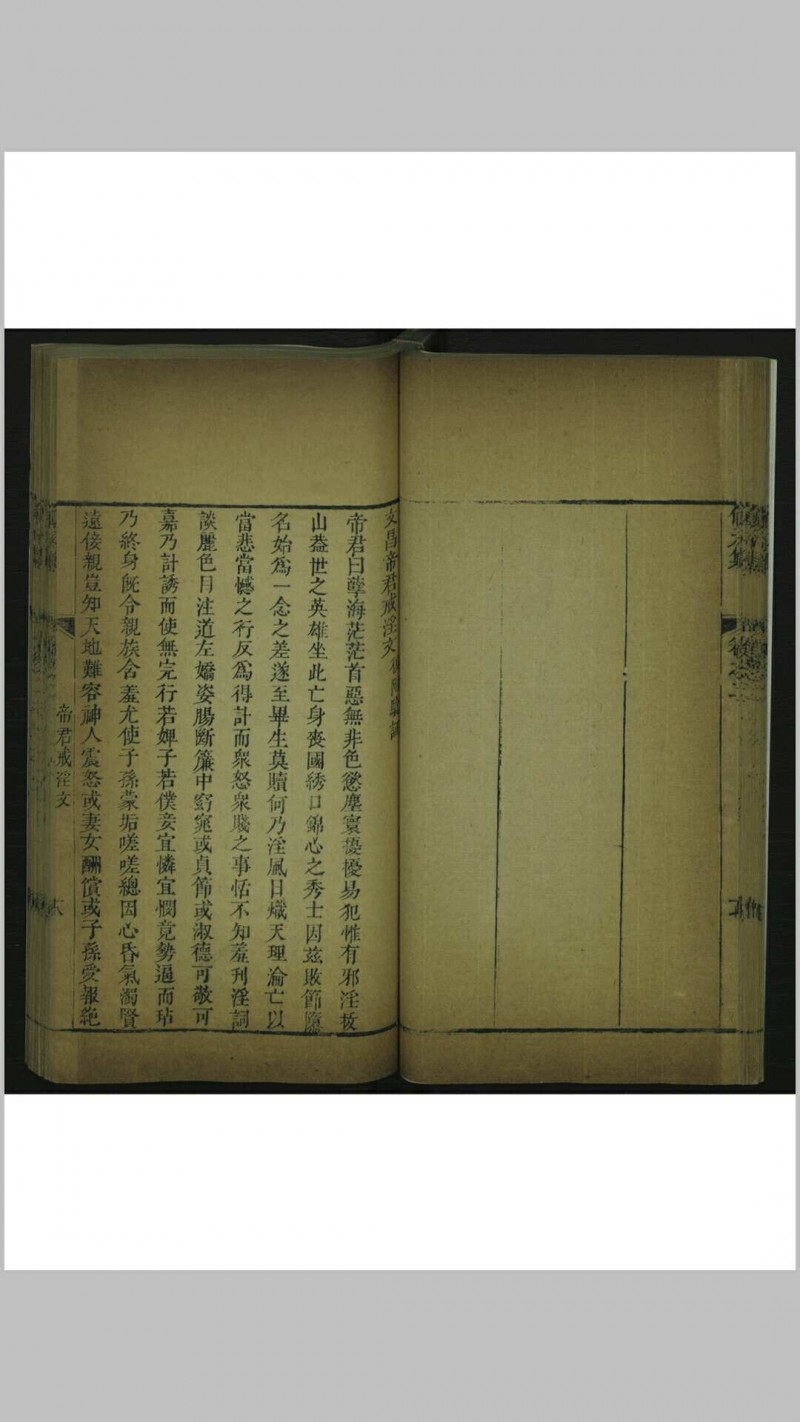 文昌帝君戒淫文
帝君曰孽海茫茫首惡無非色慾塵寰擾擾易犯惟有邪淫拔
山葢世之英雄坐此亡身喪國綉口錦心之秀士因茲敗節隳
名始爲一念之差遂至畢生莫贖何乃淫風日熾天理淪亡以
當悲當憾之行反爲得計而衆怒衆賤之事恬不知羞刋淫詞
談麗色目注道左嬌姿腸斷簾中窈窕或貞節或淑德可敬可
嘉乃計誘而使無完行若婢子若僕妾宜憐宜憫竟勢逼而玷
乃終身旣令親族含羞尤使子孫蒙垢嗟嗟總因心昏氣濁賢
遠佞親豈知天地難容神人震怒或妻女酬償或子孫受報絶
帝君戒淫文